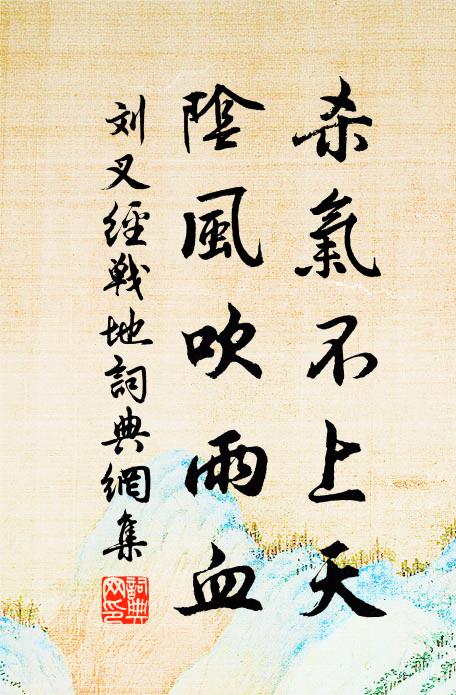 杀氣不上天
陰風吹雨血
刘叉經戰地詞典網集
詞典網印